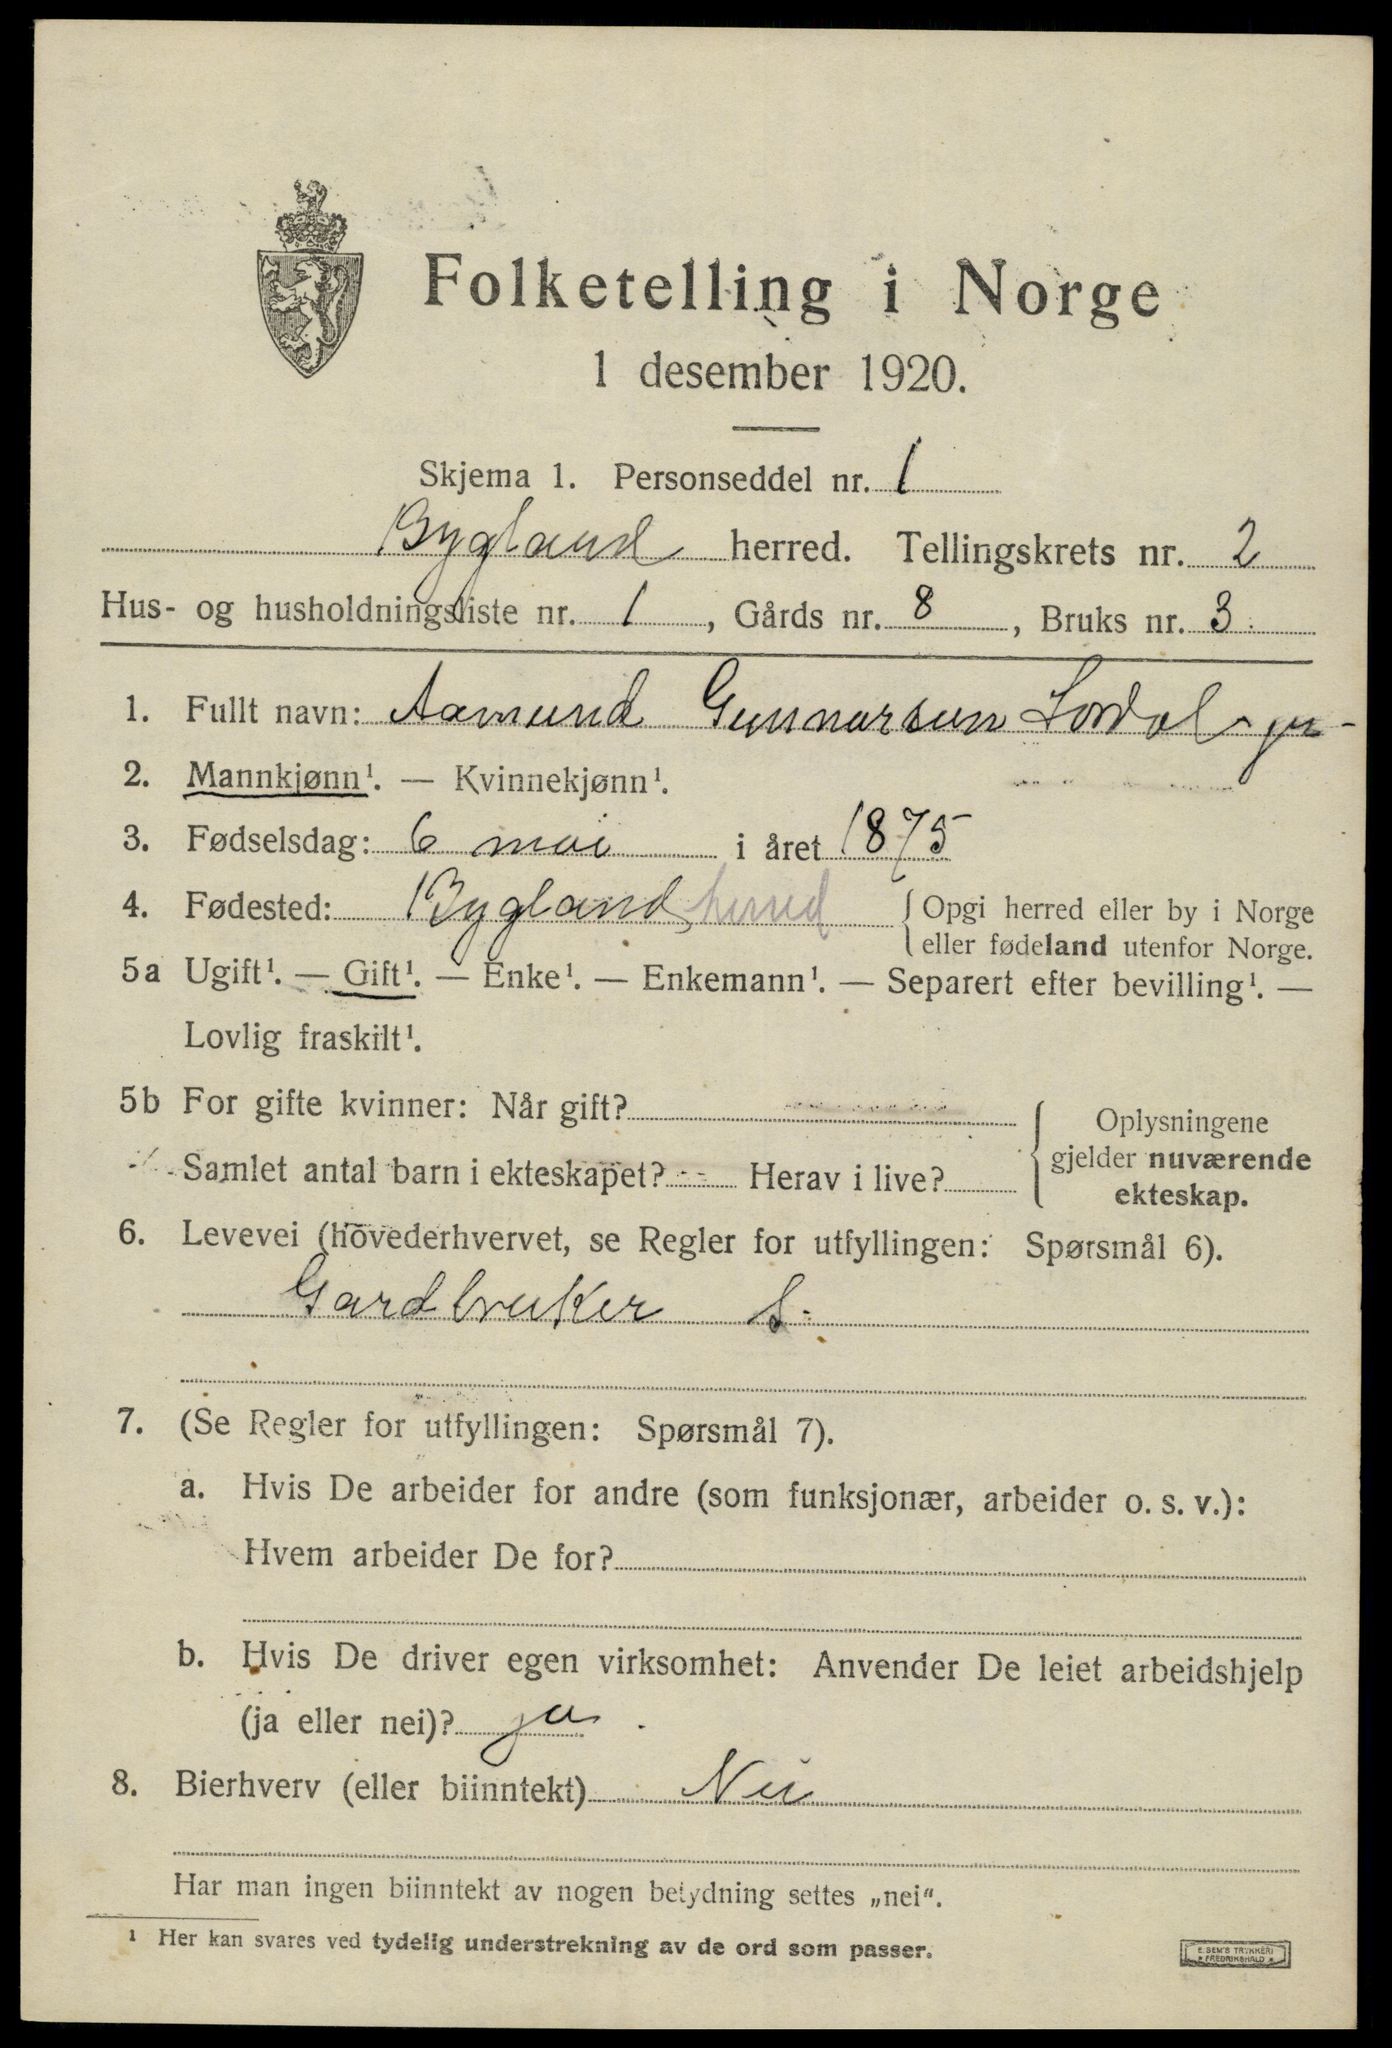 Folketelling i Norge
1 desember 1920.
Skjema 1. Personseddel nr. 1
Bygland herred. Tellingskrets nr. 2
Hus- og husholdningsliste nr. 1, Gårds nr. 8, Bruks nr. 3
1. Fullt navn: Aamund Gunnarsen Lordal jr
2. Mannkjønn¹. — Kvinnekjønn¹.
3. Fødselsdag: 6 mai i året 1875
4. Fødested: Bygland herred { Opgi herred eller by i Norge
eller fødeland utenfor Norge.
5a Ugift¹. — Gift¹. — Enke¹. — Enkemann¹. — Separert efter bevilling¹. —
Lovlig fraskilt¹.
5b For gifte kvinner: Når gift?
Samlet antal barn i ekteskapet? Herav i live?
{ Oplysningene
gjelder nuværende
ekteskap.
6. Levevei (hovederhvervet, se Regler for utfyllingen: Spørsmål 6).
Gardbruker S.
7. (Se Regler for utfyllingen: Spørsmål 7).
a. Hvis De arbeider for andre (som funksjonær, arbeider o. s. v.):
Hvem arbeider De for?
b. Hvis De driver egen virksomhet: Anvender De leiet arbeidshjelp
(ja eller nei)? ja.
8. Bierhverv (eller biinntekt) Nei
Har man ingen biinntekt av nogen betydning settes „nei“.
¹ Her kan svares ved tydelig understrekning av de ord som passer.
E. SEM'S TRYKKERI
FREDRIKSHALD